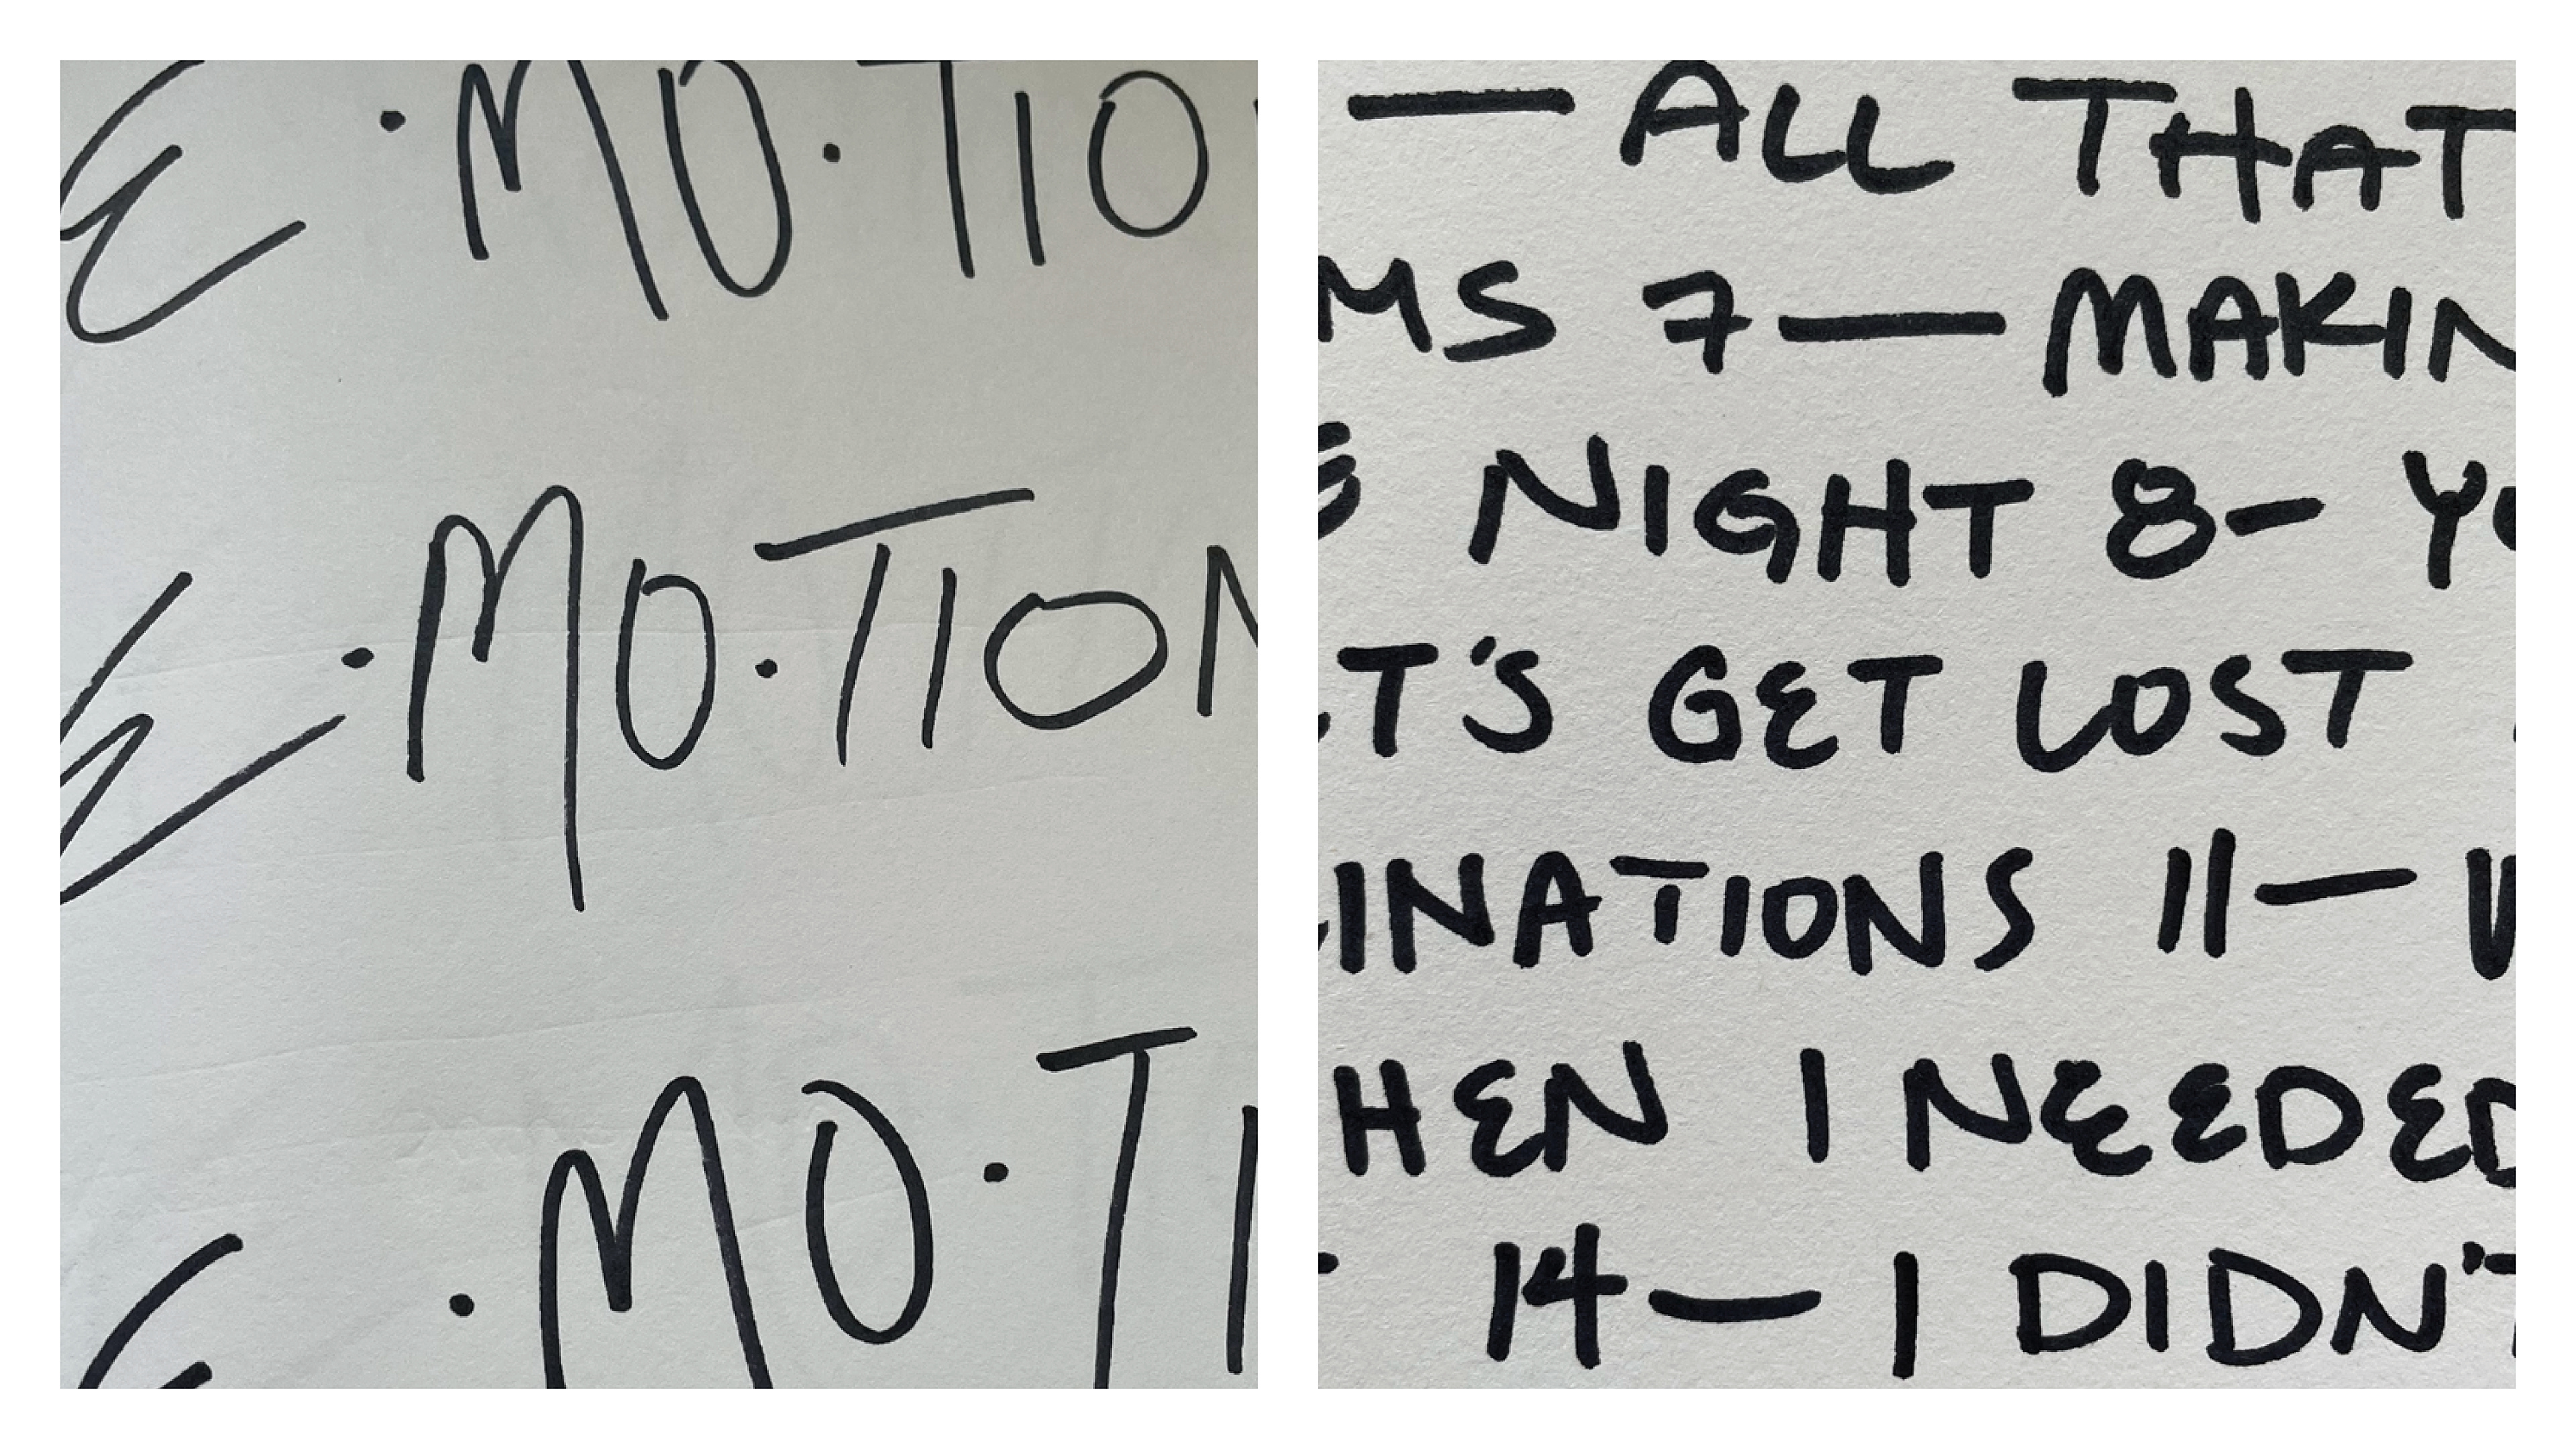 E·MO·TION
E·MO·TION
E·MO·TI
— ALL THAT
MS 7— MAKIN
NIGHT 8— YO
T'S GET LOST
INATIONS 11— W
HEN I NEEDED
14— I DIDN'T